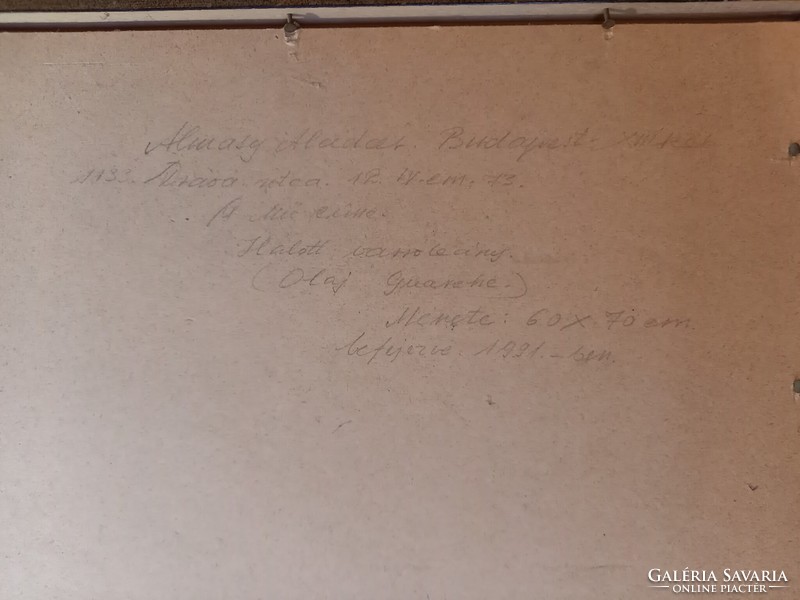 Almásy Aladár. Budapest. XIII ker
1133. utca. 12. IV. em. 73.
A Mű címe.
Halott varróleány.
(Olaj Guasche.)
Mérete: 60 x 70 cm
befejezve. 1991.-ben.
GALÉRIA SAVARIA
ONLINE PIACTÉR